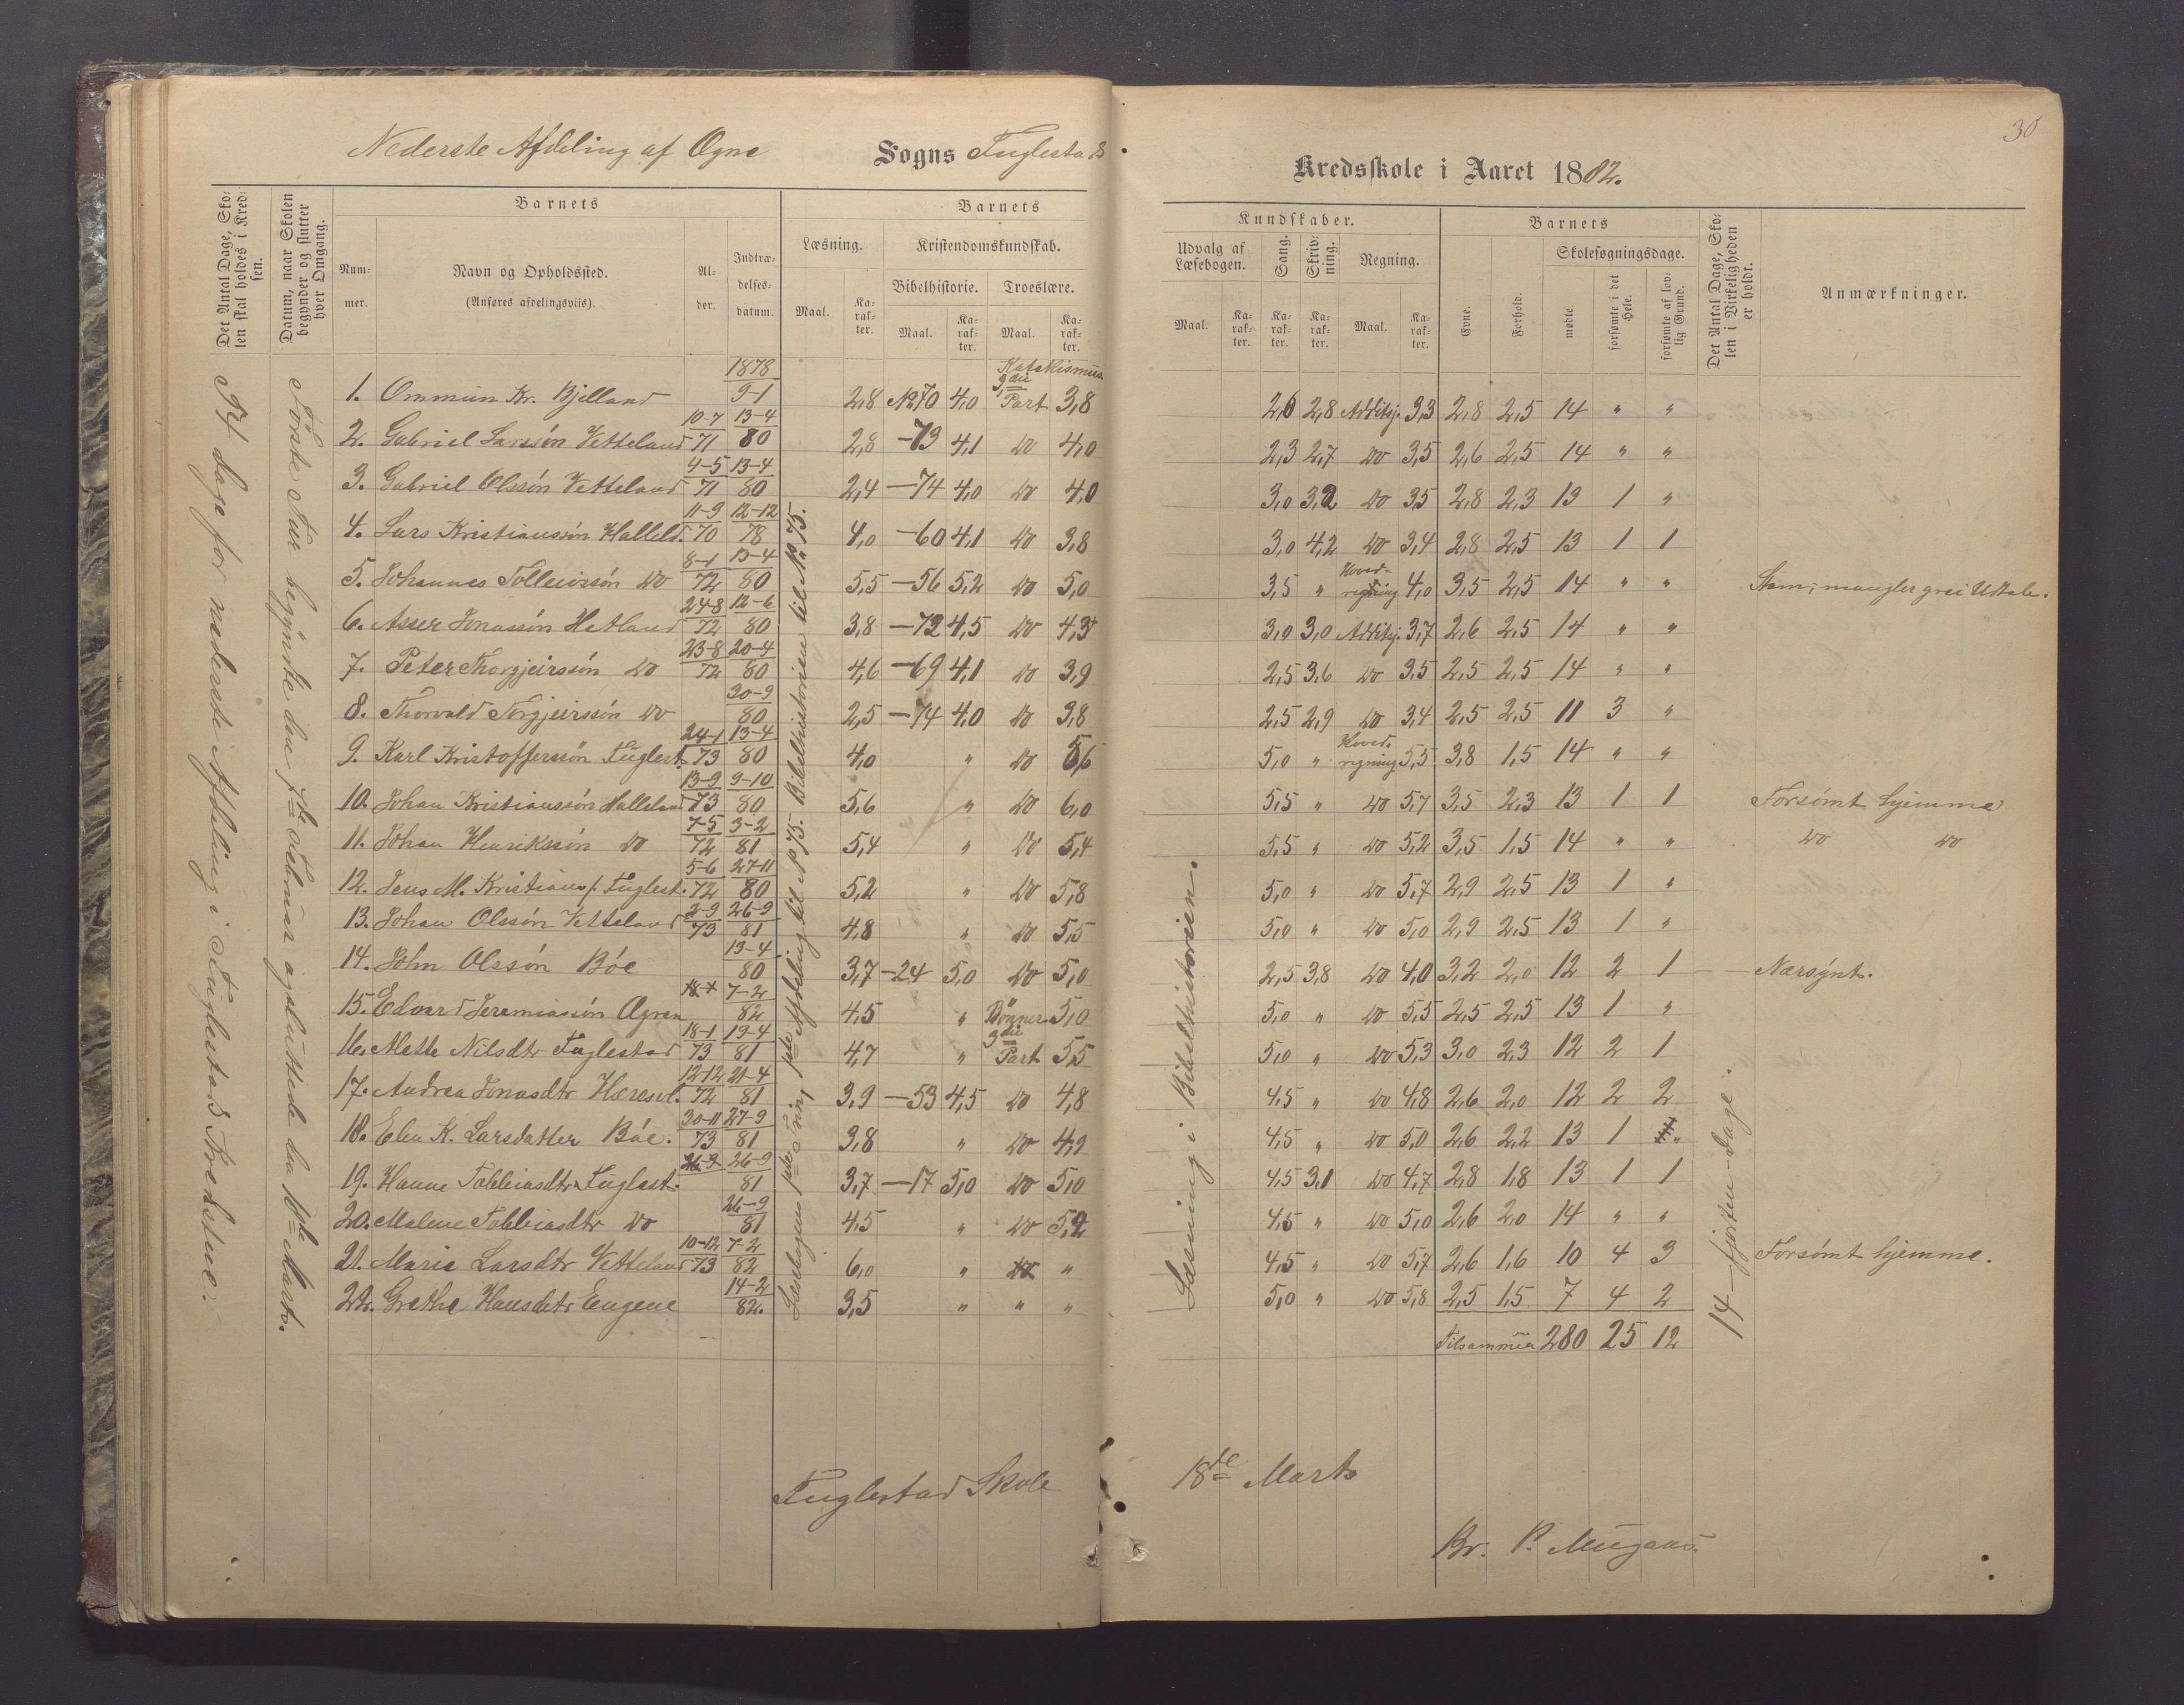 30
Nederste Afdeling af Ogne Sogns Fuglestad Kredsskole i Aaret 1882.
Det Antal Dage, Skolen skal holdes i Kredsen.
Datum, naar Skolen begynder og slutter hver Omgang.
Barnets
Barnets
Kundskaber.
Barnets
Det Antal Dage, Skolen i Virkeligheden er holdt.
Anmærkninger.
Nummer.
Navn og Opholdssted.
(Anføres afdelingsviis).
Alder.
Indtrædelsesdatum.
Læsning.
Kristendomskundskab.
Udvalg af Læsebogen.
Sang.
Skrivning.
Regning.
Evne.
Forhold.
Skolesøgningsdage.
Bibelhistorie.
Troeslære.
Maal. Karakter. Maal. Karakter. Maal. Karakter.
Maal. Karakter. Karakter. Karakter. Maal. Karakter.
mødte. forsømte i det Hele. forsømte af lovlig Grund.
14 dage for nederste Afdeling i Fuglestad Kredstue.
Første Tur begyndte den 7de Februar og sluttede den 18de Marts.
Læsning i Bibelhistorien.
14 – fjorten – Dage.
1. Ommun Kr. Bjelland 1878 9-1 2,8 № 70 4,0 Katekismus 3die Part 3,8 2,6 2,8 Additsj. 3,3 2,8 2,5 14 " "
2. Gabriel Larssön Vetteland 10-7 71 13-4 80 2,8 –73 4,1 do 4,0 2,3 2,7 do 3,5 2,6 2,5 14 " "
3. Gabriel Olssön Vetteland 4-5 71 13-4 80 2,4 –74 4,0 do 4,0 3,0 3,2 do 3,5 2,8 2,3 13 1 "
4. Lars Kristianssön Halleld. 11-9 70 12-12 78 4,0 –60 4,1 do 3,8 3,0 4,2 do 3,4 2,8 2,5 13 1 1
5. Johannes Tolleivssön do 8-1 72 13-4 80 5,5 –56 5,2 do 5,0 3,5 " Hovedregning 4,0 3,5 2,5 14 " " Stam; mangler grei Udtale.
6. Asser Jonassön Hetland 24-8 72 12-6 80 3,8 –72 4,5 do 4,3 3,0 3,0 Additsj. 3,7 2,6 2,5 14 " "
7. Peter Thorgjeirssön do 23-8 72 20-4 80 4,6 –69 4,1 do 3,9 2,5 3,6 do 3,5 2,5 2,5 14 " "
8. Thorvald Torgjeirssön do 30-9 80 2,5 –74 4,0 do 3,8 2,5 2,9 do 3,4 2,5 2,5 11 3 "
9. Karl Kristofferssön Fuglest. 24-1 73 13-4 80 4,0 " do 5,6 5,0 " Hovedregning 5,5 3,8 1,5 14 " "
10. Johan Kristianssön Halleland 13-9 73 9-10 80 5,6 " do 6,0 5,5 " do 5,7 3,5 2,3 13 1 1 Forsømt hjemme
11. Johan Henrikssön do 7-5 72 3-2 81 5,4 " do 5,4 5,5 " do 5,2 3,5 1,5 14 " " do do
12. Jens M. Kristians s. Fuglest. 5-6 72 27-11 80 5,2 " do 5,8 5,0 " do 5,7 2,9 2,5 13 1 "
13. Johan Olssön Vetteland 2-9 73 26-9 81 4,8 " do 5,5 5,0 " do 5,0 2,9 2,5 13 1 "
14. John Olssön Böe 13-4 80 3,7 –24 5,0 do 5,0 2,5 3,8 do 4,0 3,2 2,0 12 2 1 – Nærsynt.
15. Edvard Jeremiasson Ogren 7-2 82 4,5 " Bönner 5,0 5,0 " do 5,5 2,5 2,5 13 1 "
16. Mette Nilsdtr Fuglestad 18-1 73 19-4 81 4,7 " 3die Part 5,5 5,0 " do 5,3 3,0 2,3 12 2 1
17. Andrea Jonasdtr 12-12 72 21-4 81 3,9 –53 4,5 do 4,8 4,5 " do 4,8 2,6 2,0 12 2 2
18. Elen K. Larsdatter Böe. 30-11 73 27-9 81 3,8 " do 4,9 4,5 " do 5,0 2,6 2,2 13 1 "
19. Hanne Tobbiasdtr Fuglest. 26-9 81 3,7 –17 5,0 do 5,0 4,5 3,1 do 4,7 2,8 1,8 13 1 1
20. Malene Tobbiasdtr do 26-9 81 4,5 " do 5,2 4,5 " do 5,0 2,6 2,0 14 " "
21. Marie Larsdtr Vetteland 10-12 73 7-2 82 6,0 " " 4,5 " do 5,7 2,6 1,6 10 4 3 Forsømt hjemme.
22. Grethe Hansdatr Eugene 14-2 82. 3,5 " " " 5,0 " do 5,8 2,5 1,5 7 4 2
Tilsammen 280 25 12
Fuglestad Skole 18de Marts
Br. P. Mugaas.